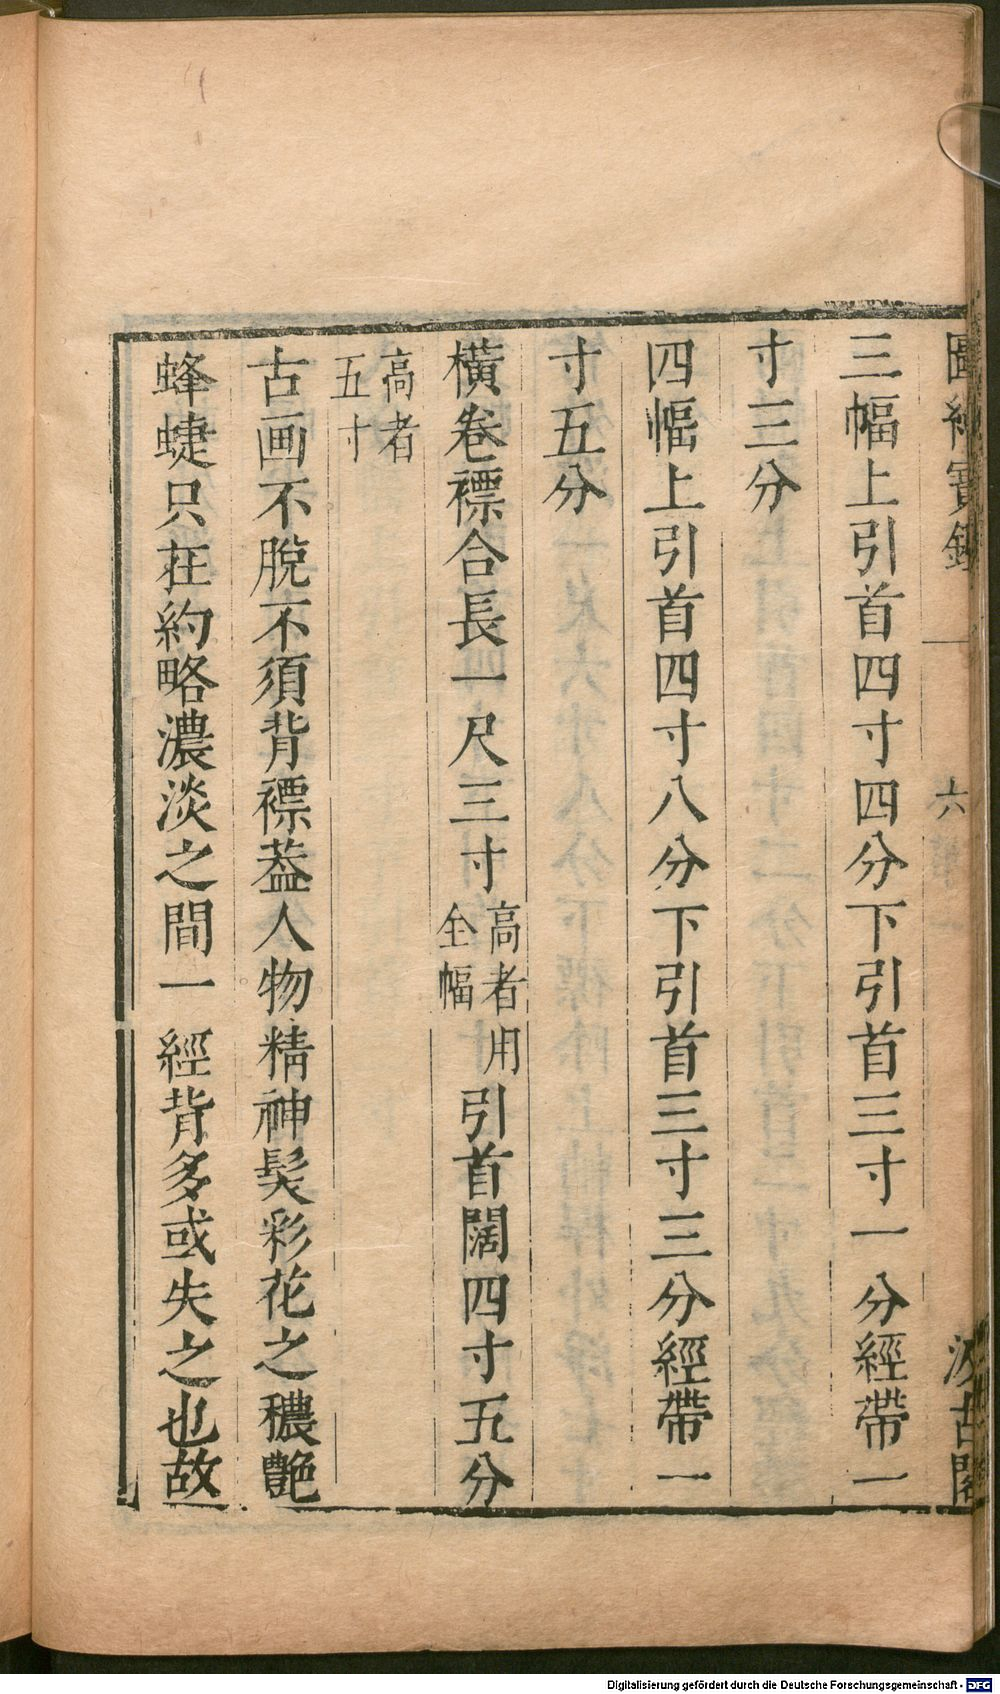 三幅上引首四寸四分下引首三寸一分經帶一
寸三分
四幅上引首四寸八分下引首三寸三分經帶一
寸五分
橫卷褾合長一尺三寸高者用全幅引首闊四寸五分
高者五寸
古画不脫不須背褾葢人物精神髮彩花之穠艷
蜂蜨只在約略濃淡之間一經背多或失之也故
六
汲古閣
Digitalisierung gefördert durch die Deutsche Forschungsgemeinschaft - DFG